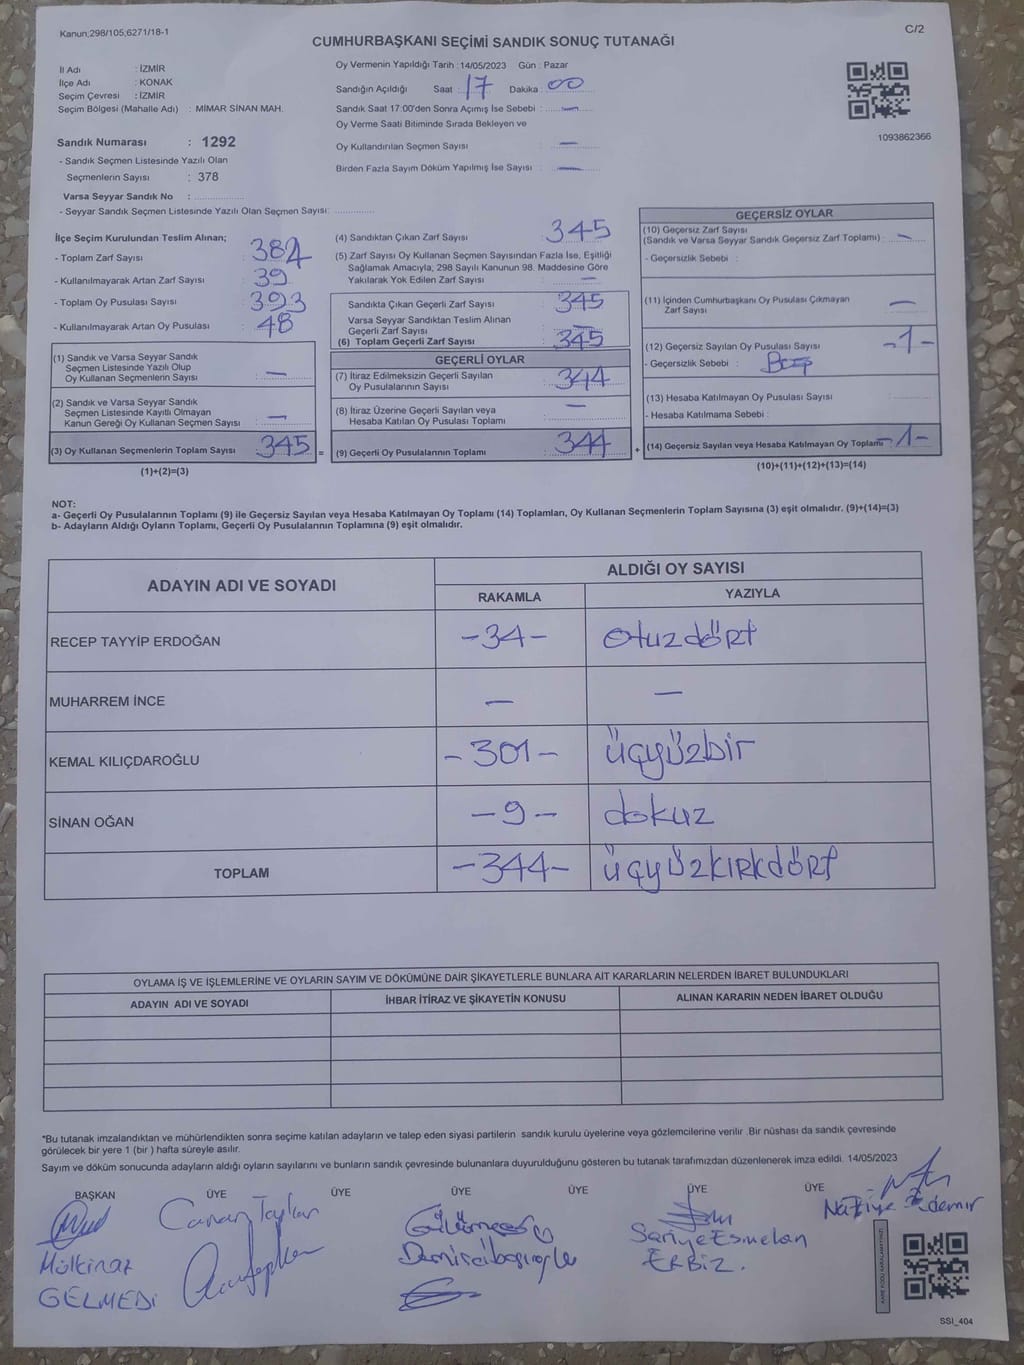 Kanun;298/105;6271/18-1
C/2
CUMHURBAŞKANI SEÇİMİ SANDIK SONUÇ TUTANAĞI
İl Adı : İZMİR
İlçe Adı : KONAK
Seçim Çevresi : İZMİR
Seçim Bölgesi (Mahalle Adı) : MİMAR SİNAN MAH.
Sandık Numarası : 1292
- Sandık Seçmen Listesinde Yazılı Olan
Seçmenlerin Sayısı : 378
Varsa Seyyar Sandık No :
- Seyyar Sandık Seçmen Listesinde Yazılı Olan Seçmen Sayısı:
Oy Vermenin Yapıldığı Tarih :14/05/2023 Gün : Pazar
Sandığın Açıldığı Saat : 17 Dakika : 00
Sandık Saat 17:00'den Sonra Açımış İse Sebebi : —
Oy Verme Saati Bitiminde Sırada Bekleyen ve
Oy Kullandırılan Seçmen Sayısı —
Birden Fazla Sayım Döküm Yapılmış İse Sayısı : —
1093862366
İlçe Seçim Kurulundan Teslim Alınan;
- Toplam Zarf Sayısı : 384
- Kullanılmayarak Artan Zarf Sayısı : 39
- Toplam Oy Pusulası Sayısı : 393
- Kullanılmayarak Artan Oy Pusulası : 48
(1) Sandık ve Varsa Seyyar Sandık
Seçmen Listesinde Yazılı Olup
Oy Kullanan Seçmenlerin Sayısı : —
(2) Sandık ve Varsa Seyyar Sandık
Seçmen Listesinde Kayıtlı Olmayan
Kanun Gereği Oy Kullanan Seçmen Sayısı : —
(3) Oy Kullanan Seçmenlerin Toplam Sayısı : 345 =
(1)+(2)=(3)
(4) Sandıktan Çıkan Zarf Sayısı : 345
(5) Zarf Sayısı Oy Kullanan Seçmen Sayısından Fazla İse, Eşitliği
Sağlamak Amacıyla, 298 Sayılı Kanunun 98. Maddesine Göre
Yakılarak Yok Edilen Zarf Sayısı : —
Sandıkta Çıkan Geçerli Zarf Sayısı : 345
Varsa Seyyar Sandıktan Teslim Alınan
Geçerli Zarf Sayısı : —
(6) Toplam Geçerli Zarf Sayısı : 345
GEÇERLİ OYLAR
(7) İtiraz Edilmeksizin Geçerli Sayılan
Oy Pusulalarının Sayısı : 344
(8) İtiraz Üzerine Geçerli Sayılan veya
Hesaba Katılan Oy Pusulası Toplamı : —
(9) Geçerli Oy Pusulalarının Toplamı : 344 +
GEÇERSİZ OYLAR
(10) Geçersiz Zarf Sayısı
(Sandık ve Varsa Seyyar Sandık Geçersiz Zarf Toplamı) : —
- Geçersizlik Sebebi :
(11) İçinden Cumhurbaşkanı Oy Pusulası Çıkmayan
Zarf Sayısı : —
(12) Geçersiz Sayılan Oy Pusulası Sayısı : -1-
- Geçersizlik Sebebi :
(13) Hesaba Katılmayan Oy Pusulası Sayısı :
- Hesaba Katılmama Sebebi :
(14) Geçersiz Sayılan veya Hesaba Katılmayan Oy Toplamı -1-
(10)+(11)+(12)+(13)=(14)
NOT:
a- Geçerli Oy Pusulalarının Toplamı (9) ile Geçersiz Sayılan veya Hesaba Katılmayan Oy Toplamı (14) Toplamları, Oy Kullanan Seçmenlerin Toplam Sayısına (3) eşit olmalıdır. (9)+(14)=(3)
b- Adayların Aldığı Oyların Toplamı, Geçerli Oy Pusulalarının Toplamına (9) eşit olmalıdır.
ADAYIN ADI VE SOYADI
ALDIĞI OY SAYISI
RAKAMLA YAZIYLA
RECEP TAYYİP ERDOĞAN -34- otuzdört
MUHARREM İNCE — —
KEMAL KILIÇDAROĞLU -301- üçyüzbir
SİNAN OĞAN -9- dokuz
TOPLAM -344- üçyüzkırkdört
OYLAMA İŞ VE İŞLEMLERİNE VE OYLARIN SAYIM VE DÖKÜMÜNE DAİR ŞİKAYETLERLE BUNLARA AİT KARARLARIN NELERDEN İBARET BULUNDUKLARI
ADAYIN ADI VE SOYADI İHBAR İTİRAZ VE ŞİKAYETİN KONUSU ALINAN KARARIN NEDEN İBARET OLDUĞU
*Bu tutanak imzalandıktan ve mühürlendikten sonra seçime katılan adayların ve talep eden siyasi partilerin sandık kurulu üyelerine veya gözlemcilerine verilir .Bir nüshası da sandık çevresinde
görülecek bir yere 1 (bir ) hafta süreyle asılır.
Sayım ve döküm sonucunda adayların aldığı oyların sayılarını ve bunların sandık çevresinde bulunanlara duyurulduğunu gösteren bu tutanak tarafımızdan düzenlenerek imza edildi. 14/05/2023
BAŞKAN ÜYE ÜYE ÜYE ÜYE ÜYE ÜYE
Mülkinaz
GELMEDİ
Canan
Demircibaşıoğlu
Sariye Esmelan
ERBİZ.
Naziye Özdemir
KARE KODU KARALAMAYINIZ!
SSI_404